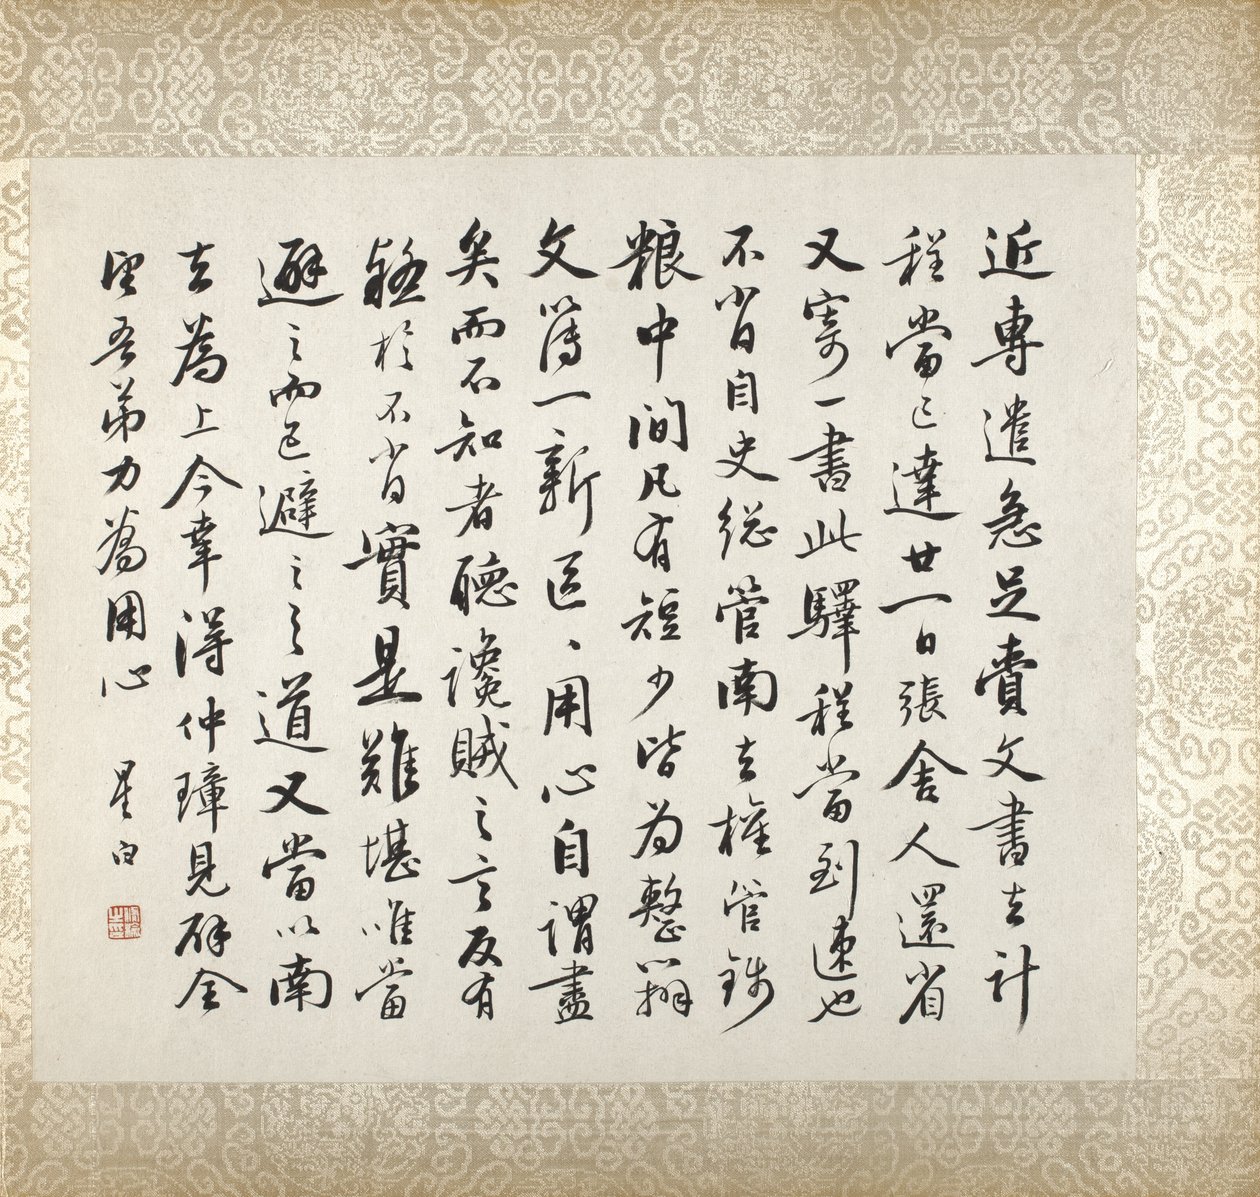 近專遣急足賫文書去計
程當已達廿一日張舍人還省
又寄一書此驛程當到速也
不肖自史総管南去權管錢
粮中間凡有短少皆为整辦
文簿一新區〻用心自謂盡
矣而不知者聽讒賊之言反有
疑於不肖實是難堪唯當
避之而已避之之道又當以南
去為上今幸得仲璋見辟全
望吾弟力為用心 星白